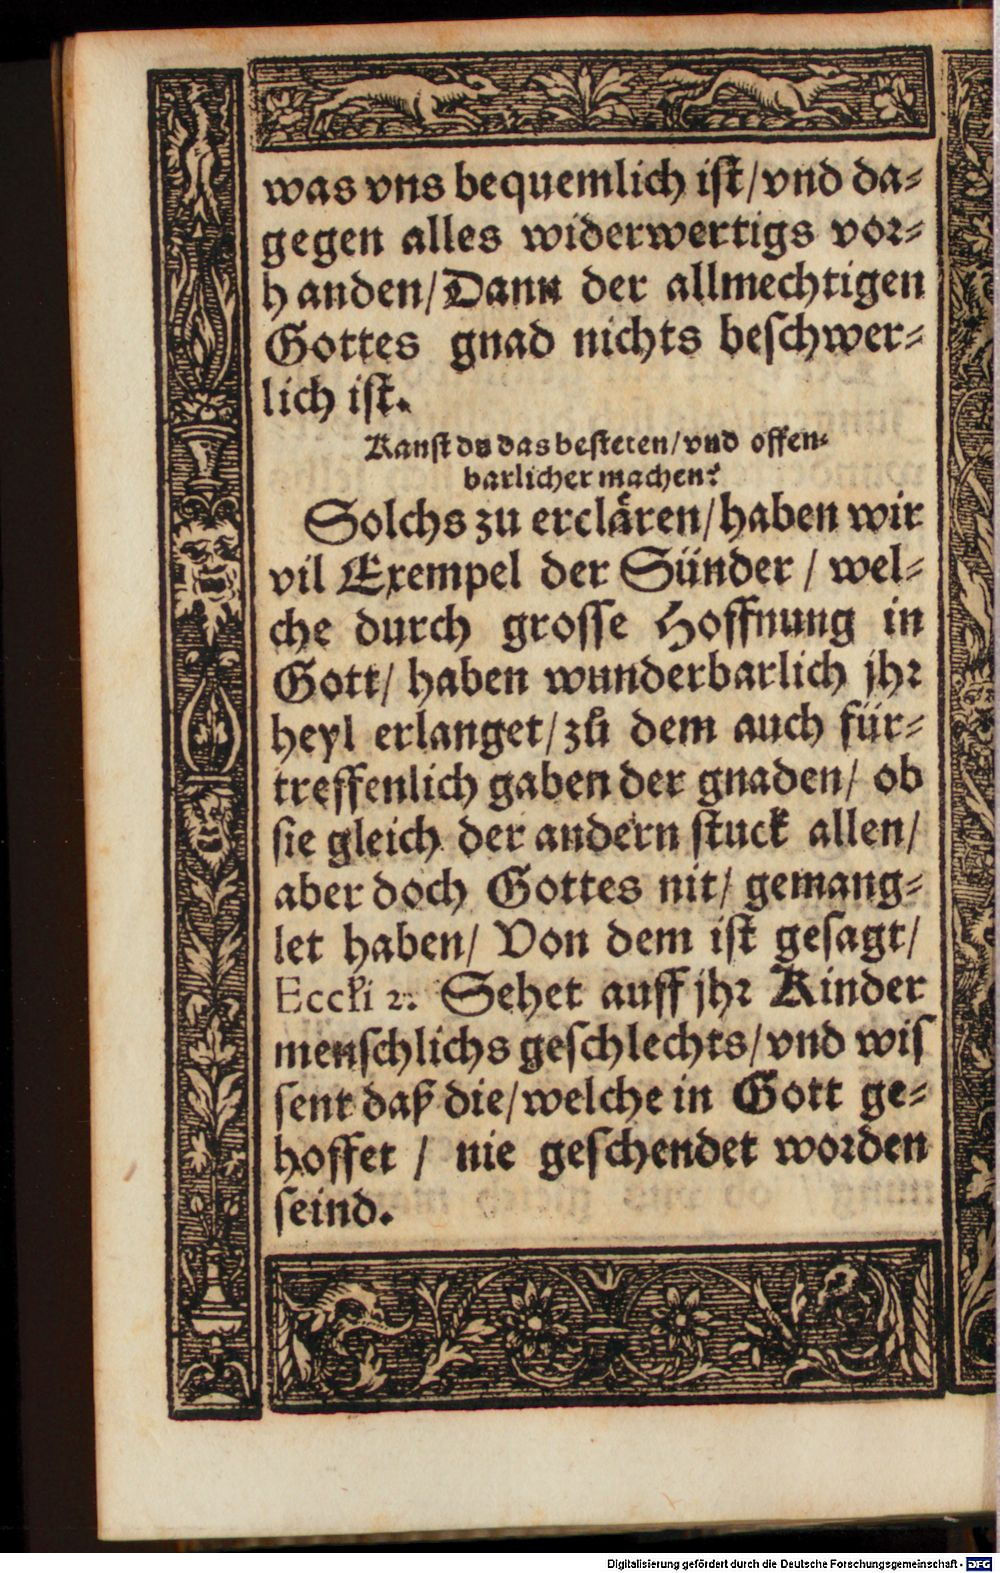 was vns bequemlich ist/vnd da-
gegen alles widerwertigs vor-
handen/Dann der allmechtigen
Gottes gnad nichts beschwer-
lich ist.
Kanst du das besteten/vnd offen-
barlicher machen?
Solchs zu erclären/haben wir
vil Exempel der Sünder / wel-
che durch grosse Hoffnung in
Gott/ haben wunderbarlich jhr
heyl erlanget/zů dem auch für-
treffenlich gaben der gnaden/ ob
sie gleich der andern stuck allen/
aber doch Gottes nit/ gemang-
let haben/ Von dem ist gesagt/
Eccli 2. Sehet auff jhr Kinder
menschlichs geschlechts/vnd wis
sent daß die/welche in Gott ge-
hoffet / nie geschendet worden
seind.
Digitalisierung gefördert durch die Deutsche Forschungsgemeinschaft - DFG